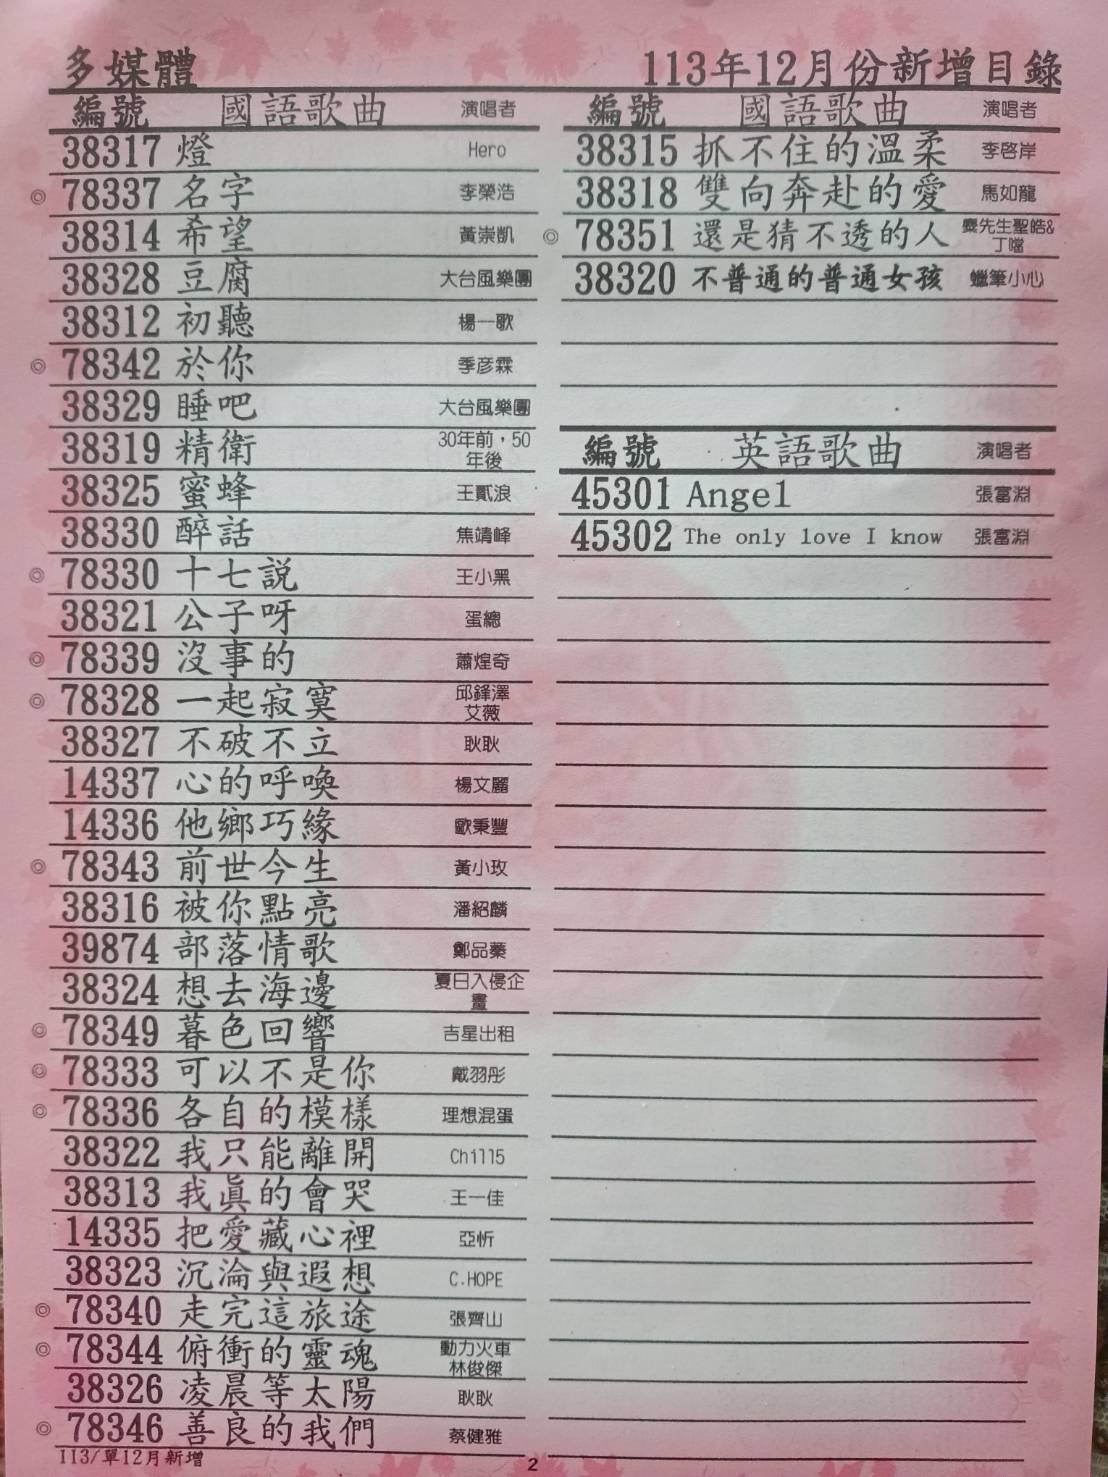 多媒體 113年12月份新增目錄
編號 國語歌曲 演唱者
38317 燈 Hero
◎ 78337 名字 李榮浩
38314 希望 黃崇凱
38328 豆腐 大台風樂團
38312 初聽 楊一歌
◎ 78342 於你 季彦霖
38329 睡吧 大台風樂團
38319 精衛 30年前，50
年後
38325 蜜蜂 王貳浪
38330 醉話 焦靖峰
◎ 78330 十七説 王小黑
38321 公子呀 蛋總
◎ 78339 沒事的 蕭煌奇
◎ 78328 一起寂寞 邱鋒澤
艾薇
38327 不破不立 耿耿
14337 心的呼喚 楊文麗
14336 他鄉巧緣 歐秉豐
◎ 78343 前世今生 黃小玫
38316 被你點亮 潘紹麟
39874 部落情歌 鄭品蓁
38324 想去海邊 夏日入侵企
畫
◎ 78349 暮色回響 吉星出租
◎ 78333 可以不是你 戴羽彤
◎ 78336 各自的模樣 理想混蛋
38322 我只能離開 Chill5
38313 我真的會哭 王一佳
14335 把愛藏心裡 亞忻
38323 沉淪與遐想 C.HOPE
◎ 78340 走完這旅途 張齊山
◎ 78344 俯衝的靈魂 動力火車
林俊傑
38326 凌晨等太陽 耿耿
◎ 78346 善良的我們 蔡健雅
編號 國語歌曲 演唱者
38315 抓不住的溫柔 李啓岸
38318 雙向奔赴的愛 馬如龍
◎ 78351 還是猜不透的人 麋先生聖皓&
丁噹
38320 不普通的普通女孩 蠟筆小心
編號 英語歌曲 演唱者
45301 Angel 張富淵
45302 The only love I know 張富淵
113/單12月新增 2